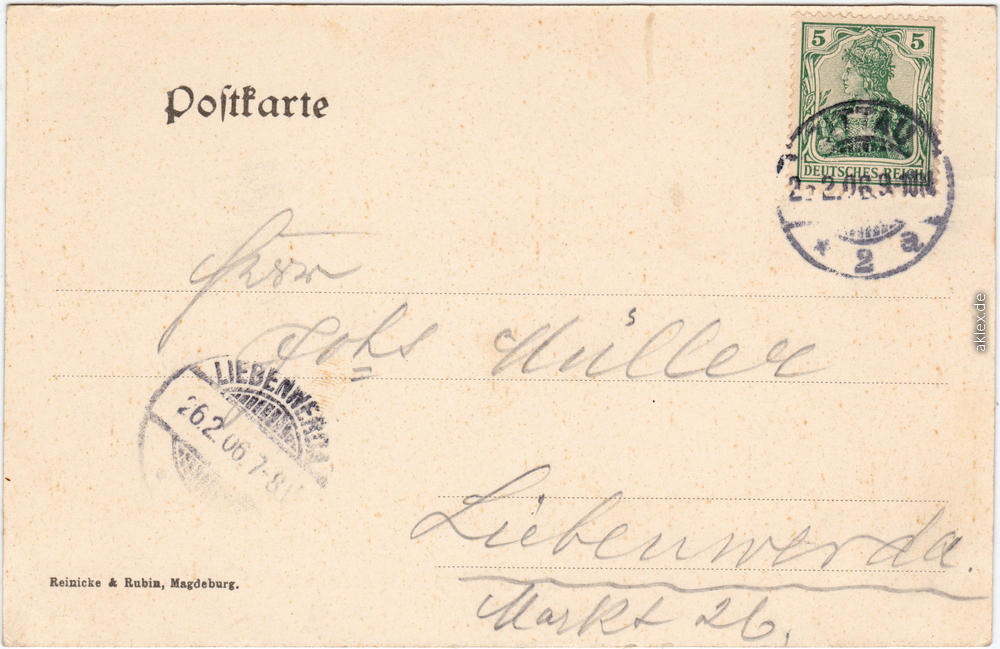 Postkarte
5 5
DEUTSCHES REICH
2.06.9-10
* 2 a
Herr
Johs Müller
LIEBENWERDA
26.2.06.7-8
Liebenwerda.
Markt 26.
Reinicke & Rubin, Magdeburg.
aklex.de